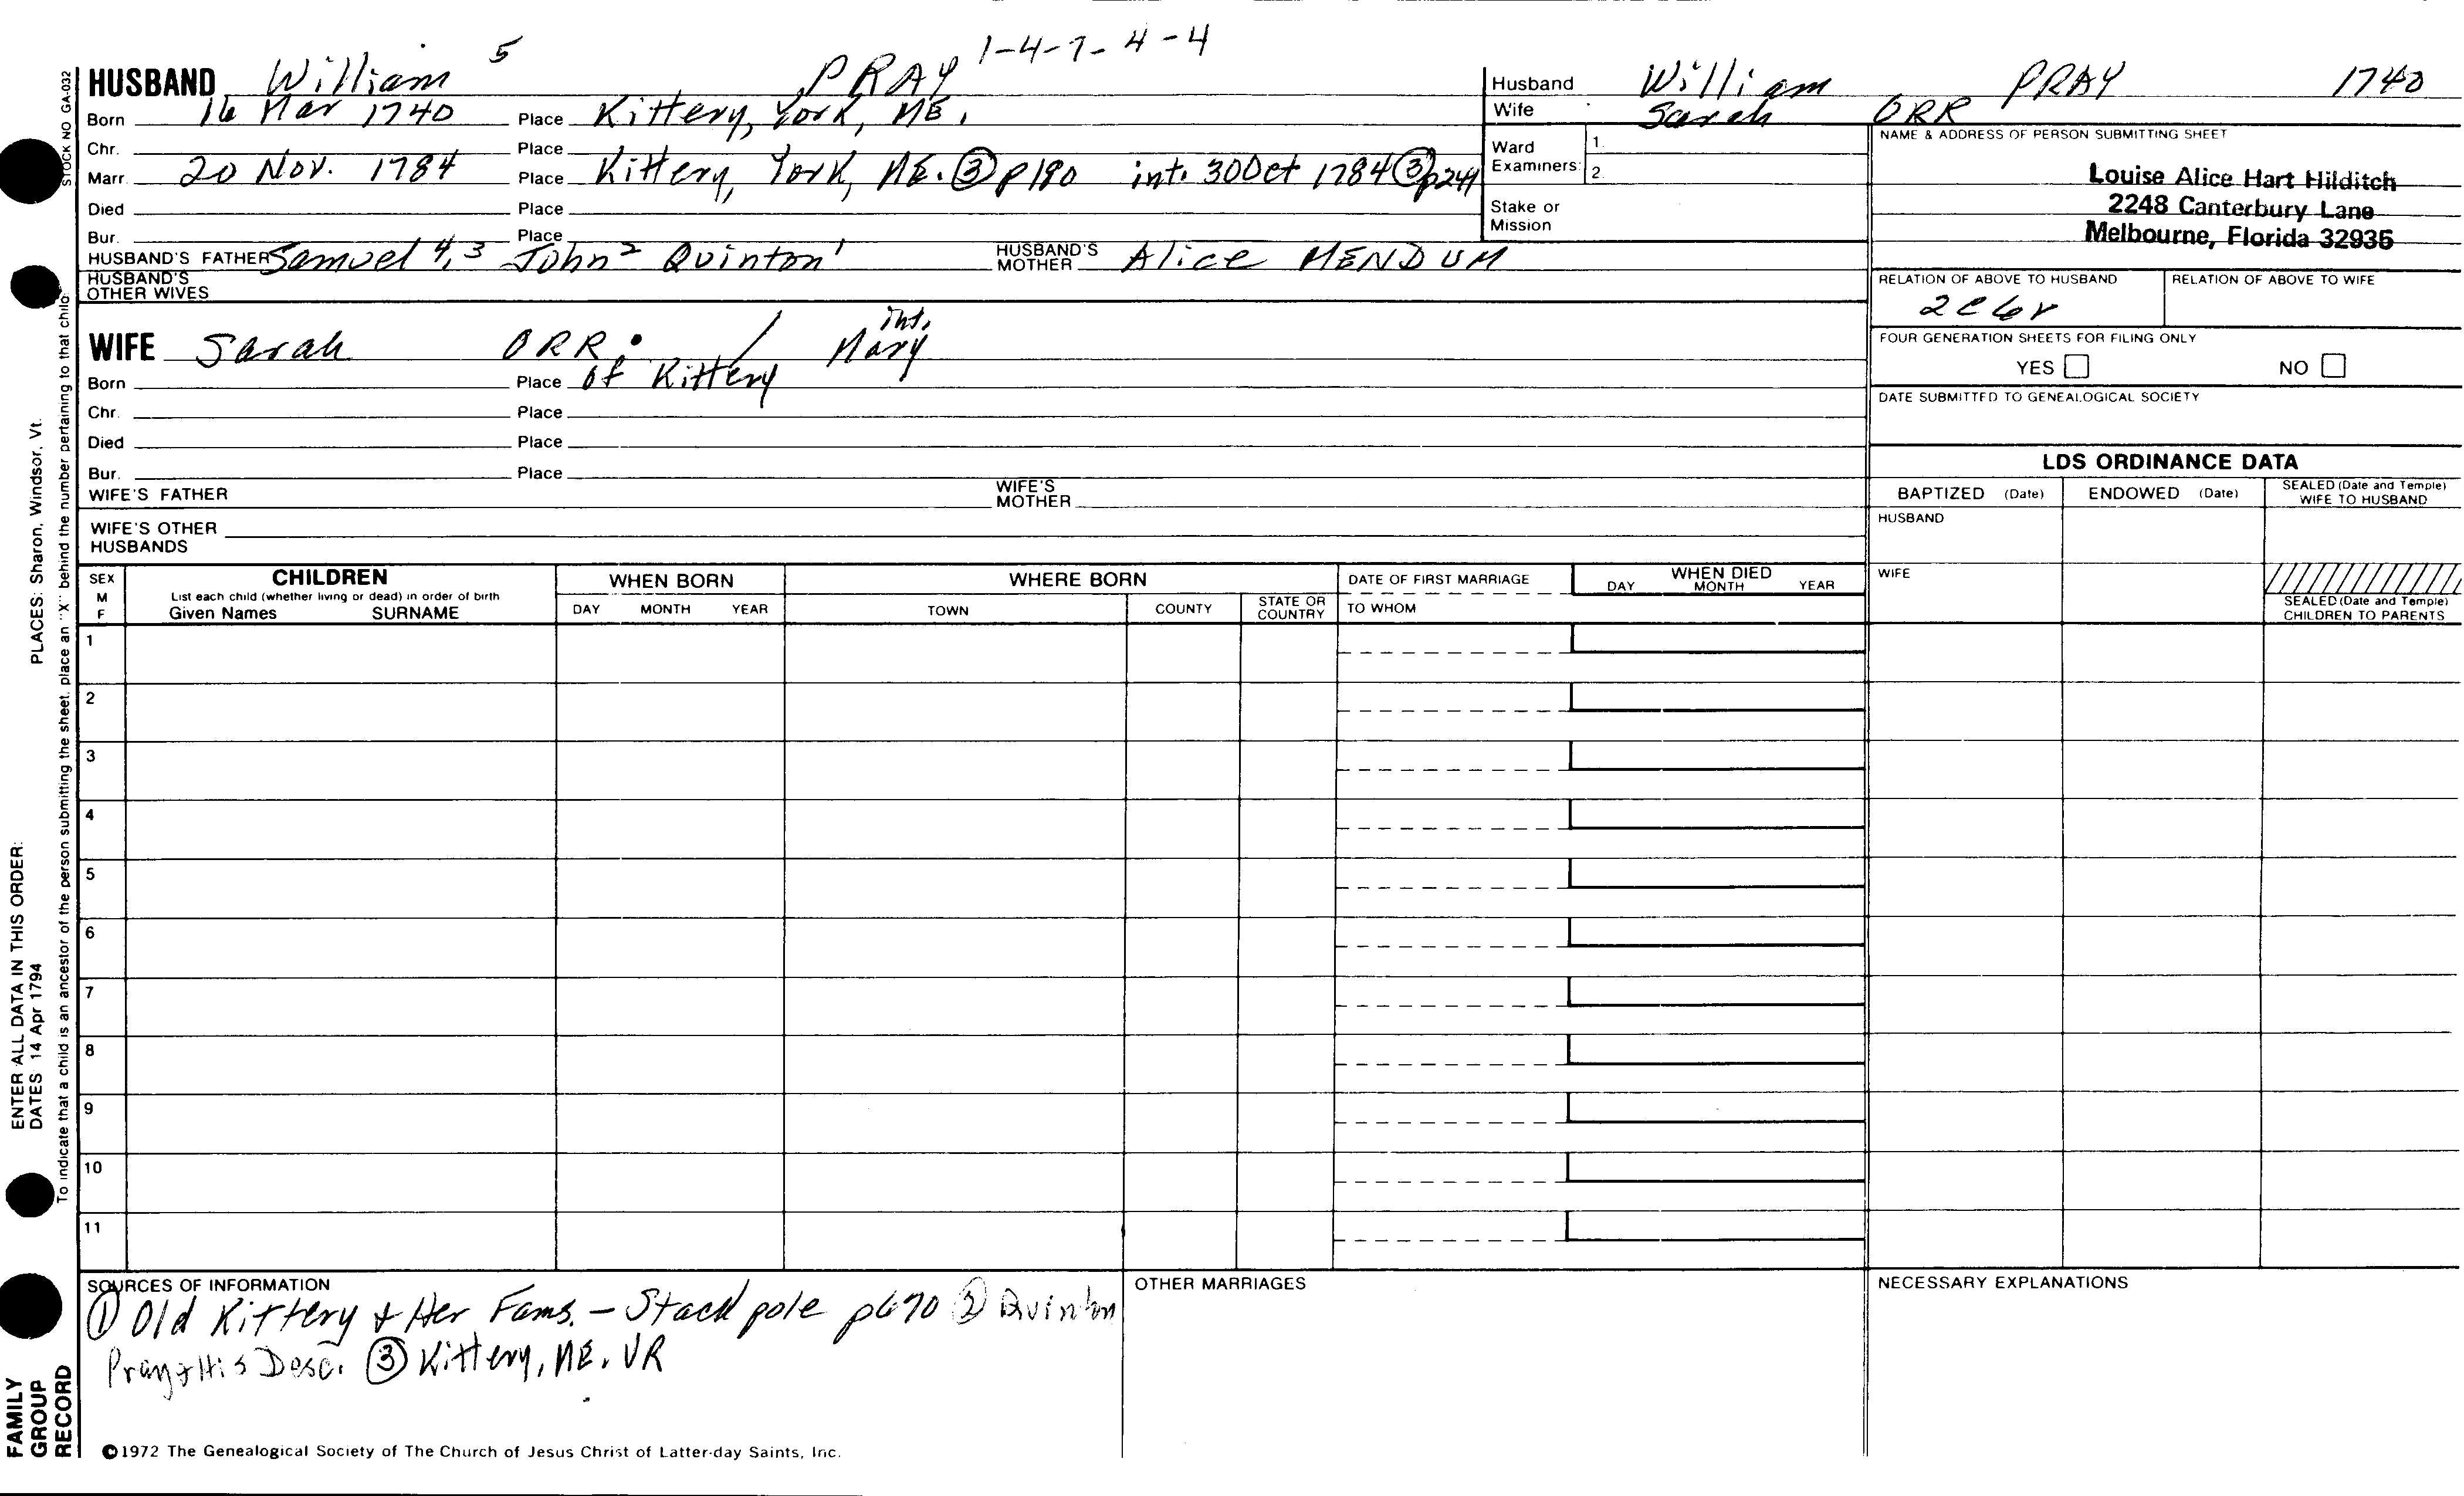 1-4-7-4-4
HUSBAND William 5 PRAY
Born 16 Mar 1740 Place Kittery, York, ME.
Chr. Place
Marr. 20 Nov. 1784 Place Kittery, York, ME. ③ p180 int. 30 Oct 1784 ③ p249
Died Place
Bur. Place
HUSBAND'S FATHER Samuel 4,3 John 2 Quinton 1 HUSBAND'S MOTHER Alice MENDUM
HUSBAND'S OTHER WIVES
WIFE Sarah ORR. / int. Mary
Born Place of Kittery
Chr. Place
Died Place
Bur. Place
WIFE'S FATHER WIFE'S MOTHER
WIFE'S OTHER HUSBANDS
Husband William PRAY 1740
Wife Sarah ORR
Ward Examiners: 1.
2.
Stake or Mission
NAME & ADDRESS OF PERSON SUBMITTING SHEET
Louise Alice Hart Hilditch
2248 Canterbury Lane
Melbourne, Florida 32935
RELATION OF ABOVE TO HUSBAND RELATION OF ABOVE TO WIFE
2C6r
FOUR GENERATION SHEETS FOR FILING ONLY
YES NO
DATE SUBMITTED TO GENEALOGICAL SOCIETY
LDS ORDINANCE DATA
BAPTIZED (Date) ENDOWED (Date) SEALED (Date and Temple) WIFE TO HUSBAND
HUSBAND
WIFE
SEALED (Date and Temple) CHILDREN TO PARENTS
SEX M F
CHILDREN
List each child (whether living or dead) in order of birth
Given Names SURNAME
WHEN BORN
DAY MONTH YEAR
WHERE BORN
TOWN COUNTY STATE OR COUNTRY
DATE OF FIRST MARRIAGE
TO WHOM
WHEN DIED
DAY MONTH YEAR
1
2
3
4
5
6
7
8
9
10
11
SOURCES OF INFORMATION
① Old Kittery & Her Fams. - Stackpole p670 ② Quinton
Pray & His Desc. ③ Kittery, ME. VR
OTHER MARRIAGES
NECESSARY EXPLANATIONS
©1972 The Genealogical Society of The Church of Jesus Christ of Latter-day Saints, Inc.
STOCK NO GA-032
To indicate that a child is an ancestor of the person submitting the sheet, place an "X" behind the number pertaining to that child.
PLACES: Sharon, Windsor, Vt.
ENTER ALL DATA IN THIS ORDER:
DATES 14 Apr 1794
FAMILY
GROUP
RECORD